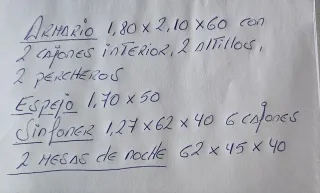 ARMARIO 1,80 x 2,10 x 60 con
2 cajones interior, 2 altillos,
2 percheros
Espejo 1,70 x 50
Sinfoner 1,27 x 62 x 40 6 cajones
2 mesas de noche 62 x 45 x 40